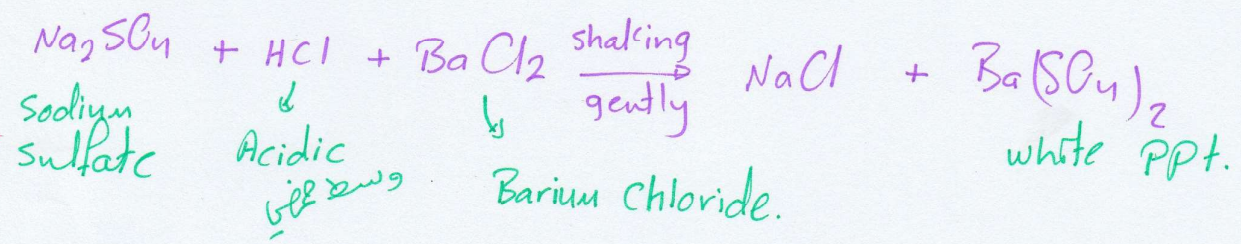 Na2SO4 + HCl + BaCl2 shaking gently NaCl + Ba(SO4)2
Sodium Sulfate
Acidic
وسط
Barium Chloride.
white ppt.